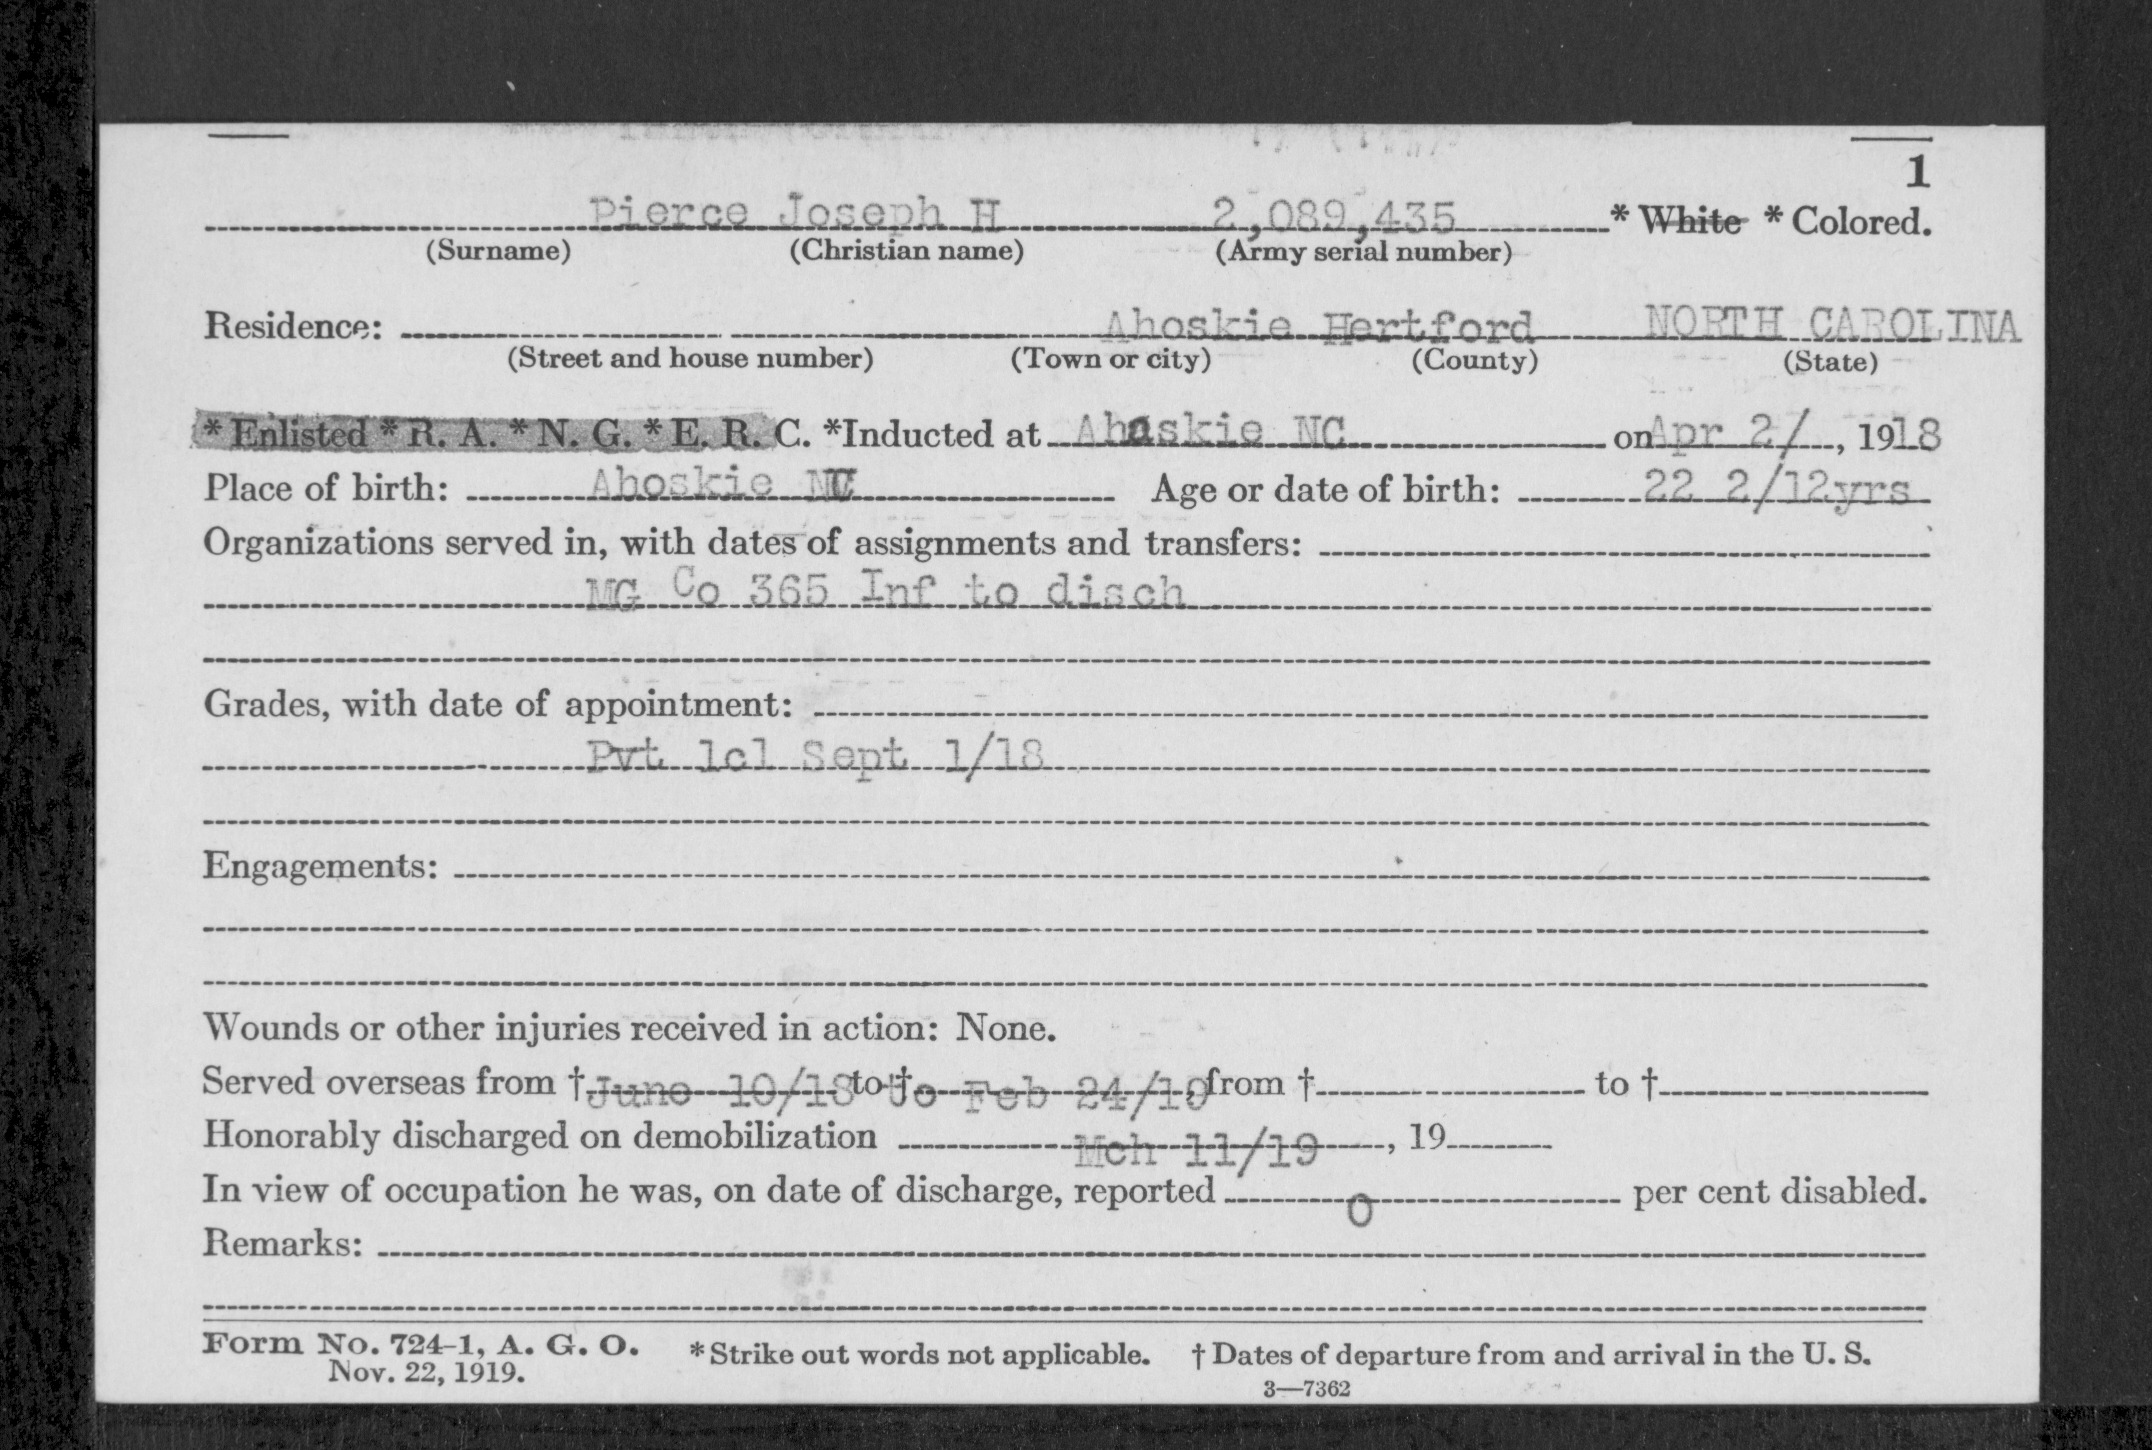 1
Pierce Joseph H 2,089,435 * White * Colored.
(Surname) (Christian name) (Army serial number)
Residence: Ahoskie Hertford NORTH CAROLINA
(Street and house number) (Town or city) (County) (State)
* Enlisted * R. A. * N. G. * E. R. C. *Inducted at Ahoskie NC on Apr 2/, 1918
Place of birth: Ahoskie NC Age or date of birth: 22 2/12yrs
Organizations served in, with dates of assignments and transfers:
MG Co 365 Inf to disch
Grades, with date of appointment:
Pvt 1cl Sept 1/18
Engagements:
Wounds or other injuries received in action: None.
Served overseas from † June 10/18 to † to Feb 24/19, from † to †
Honorably discharged on demobilization Mch 11/19, 19
In view of occupation he was, on date of discharge, reported 0 per cent disabled.
Remarks:
Form No. 724-1, A. G. O. * Strike out words not applicable. † Dates of departure from and arrival in the U. S.
Nov. 22, 1919.
3—7362